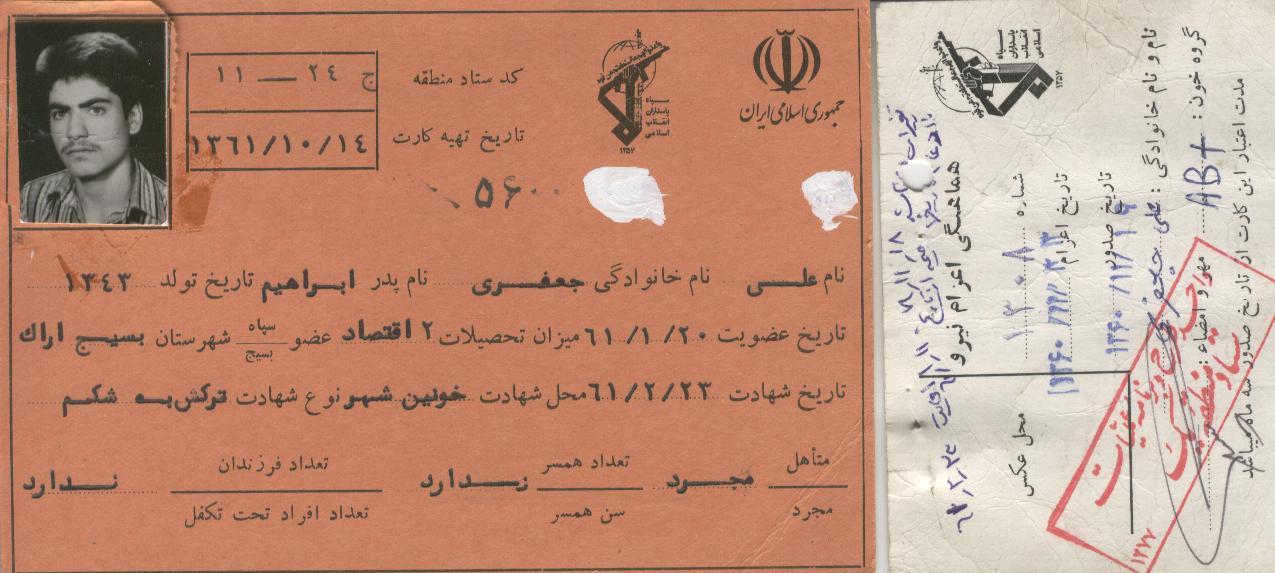 جمهوری اسلامی ایران
سپاه
پاسداران
انقلاب
اسلامی
۱۳۵۷
کد ستاد منطقه ج ۲۴ — ۱۱
تاریخ تهیه کارت ۱۳۶۱/۱۰/۱۴
۵۶۰۰
نام علی نام خانوادگی جعفری نام پدر ابراهیم تاریخ تولد ۱۳۴۳
تاریخ عضویت ۶۱/۱/۲۰ میزان تحصیلات ۲ اقتصاد عضو سپاه بسیج شهرستان بسیج اراک
تاریخ شهادت ۶۱/۲/۲۳ محل شهادت خونین شهر نوع شهادت ترکش به شکم
متأهل مجرد مجرد تعداد همسر سن همسر ندارد تعداد فرزندان تعداد افراد تحت تکفل ندارد
سپاه
پاسداران
انقلاب
اسلامی
۱۳۵۷
هماهنگی اعزام نیرو
شماره ۱۳۰۸
تاریخ اعزام
تاریخ صدور
محل عکس
نام و نام خانوادگی : علی جعفری
مهر و امضاء :
گروه خون : AB+
مدت اعتبار این کارت از تاریخ صدور سه ماه میباشد